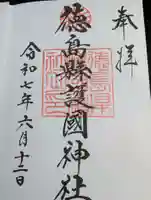 奉拝
徳島縣護國神社
令和七年六月十二日